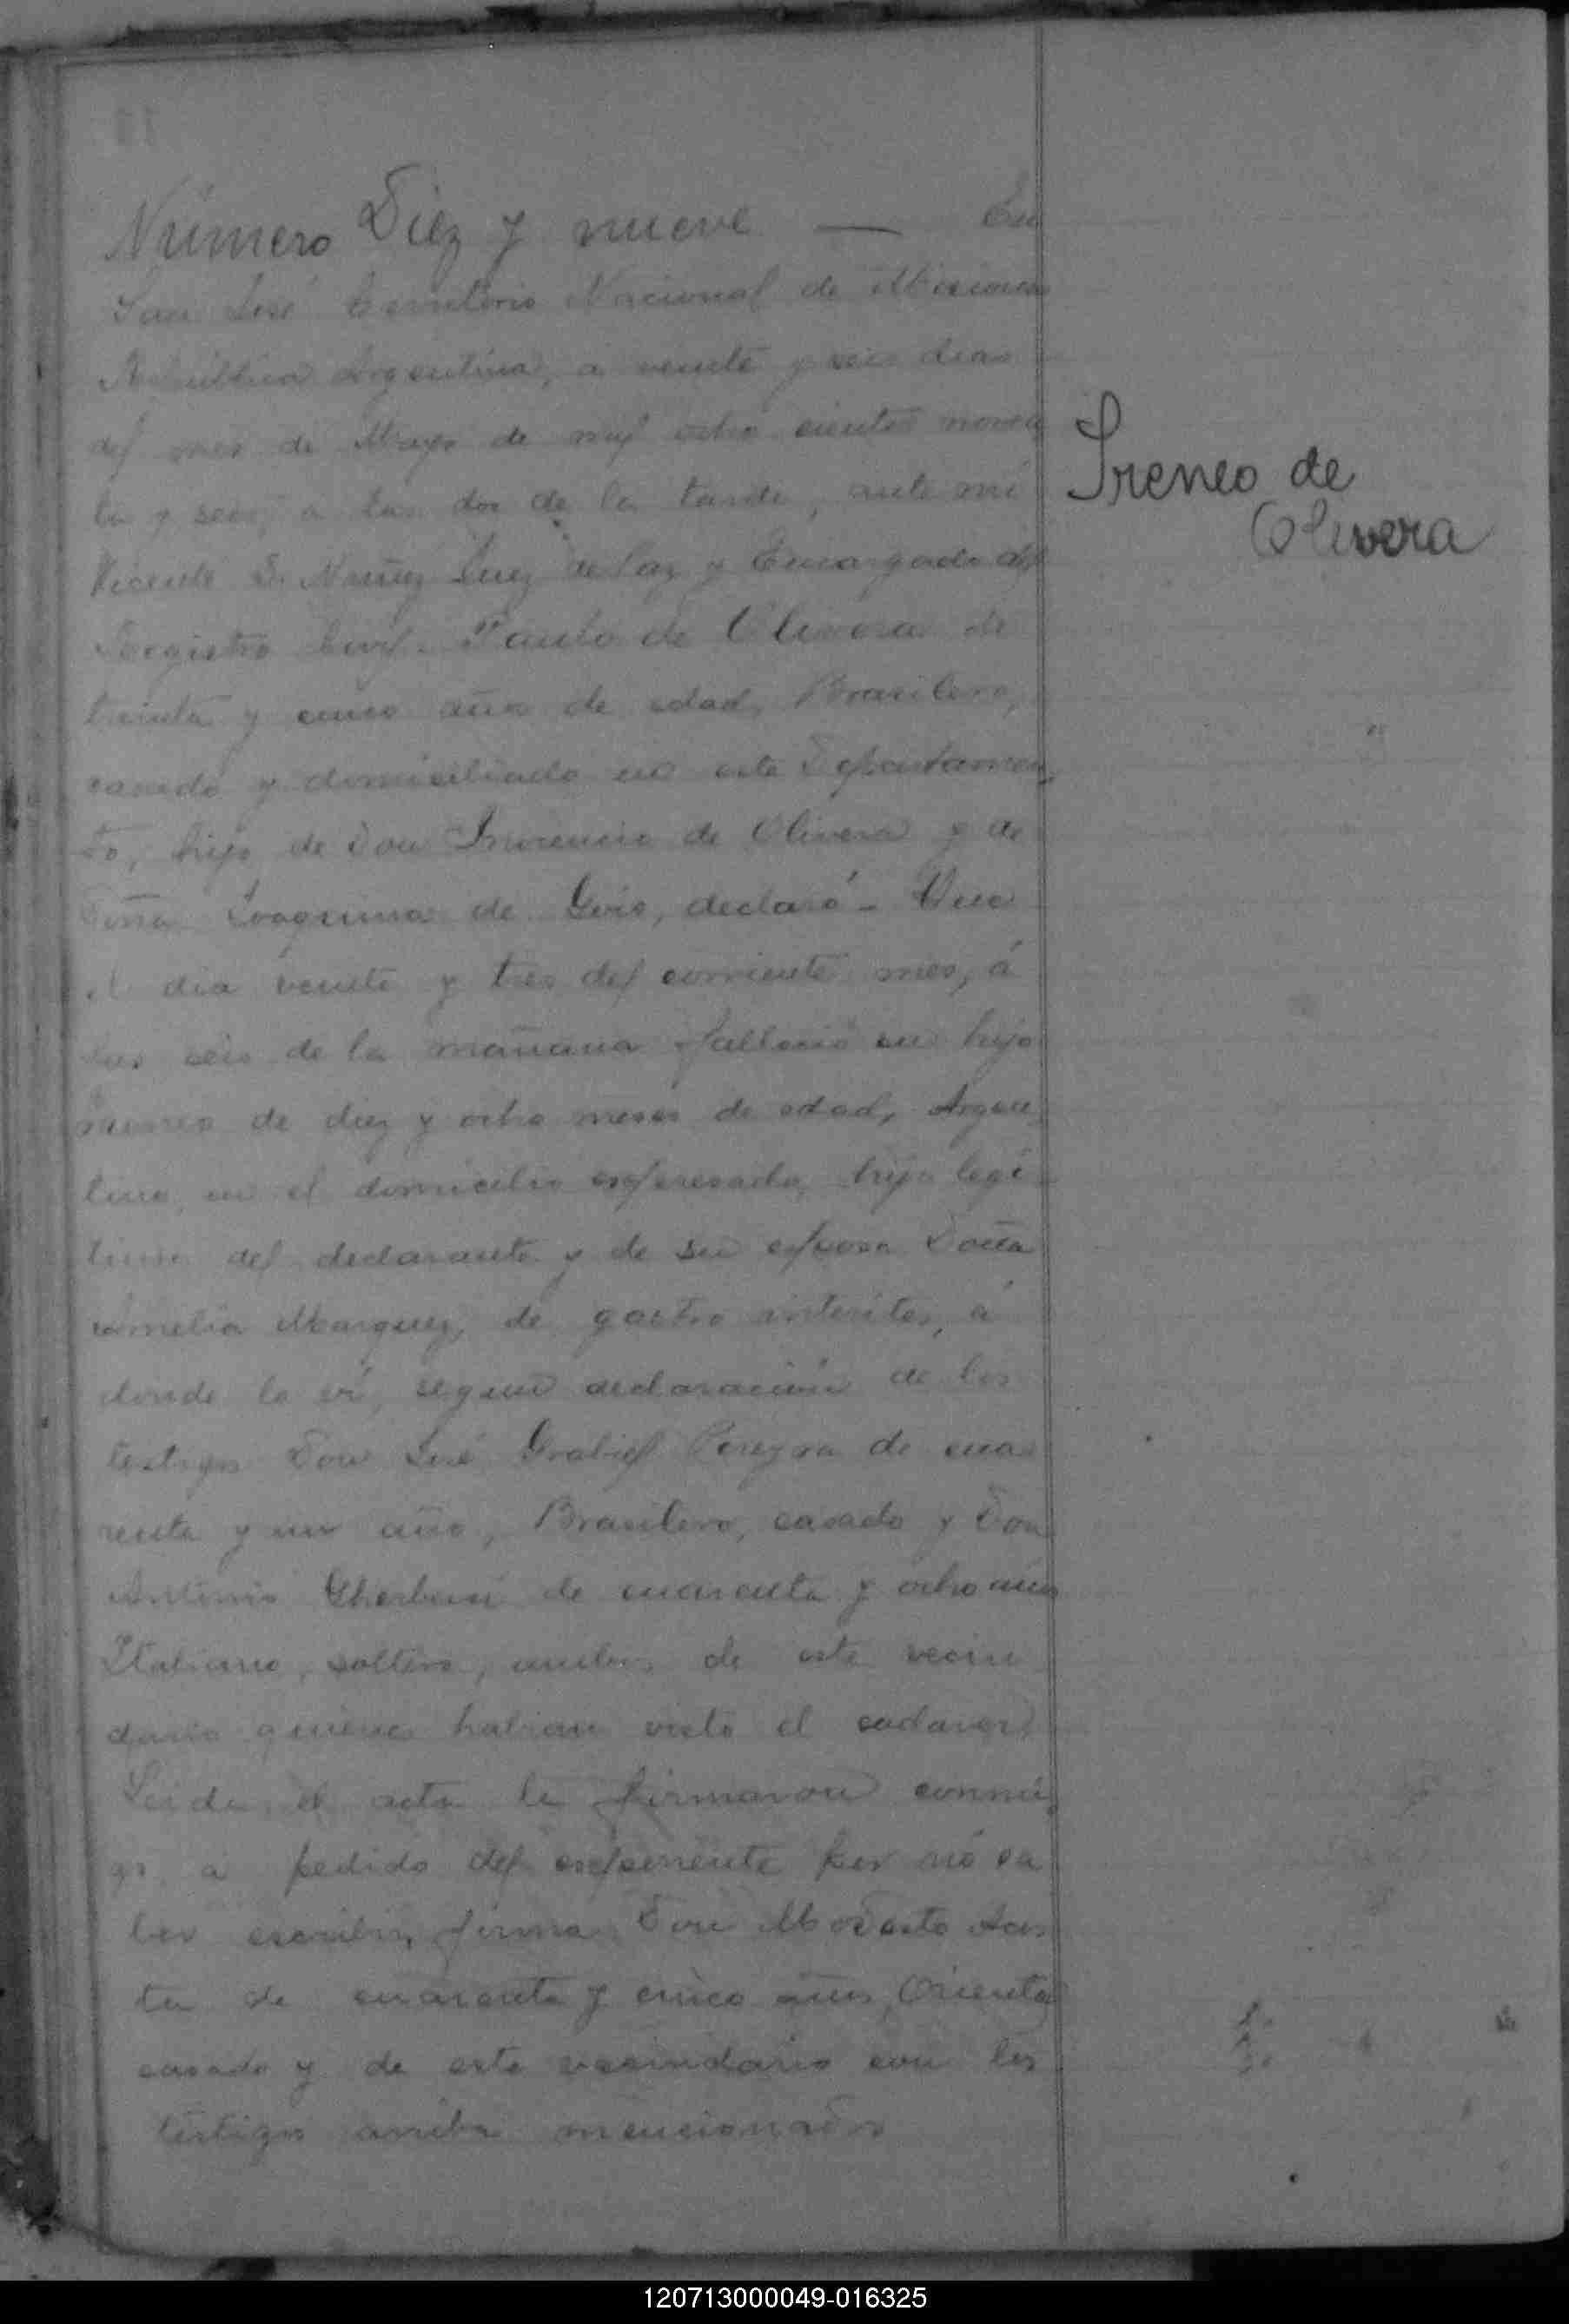 Número Diez y nueve — En
San José Territorio Nacional de Misiones
República Argentina, a veinte y seis dias
del mes de Mayo de mil ocho cientos noven
ta y seis, a las dos de la tarde, ante mi
Vicente Nuñez Juez de Paz y Encargado del
Registro Civil. Paulo de Olivera de
treinta y cinco años de edad, Brasilero,
casado y domiciliado en este Departamen
to, hijo de Don Inocencio de Olivera y de
Doña Joaquina de Gois, declaró - Que
el dia veinte y tres del corriente mes, á
las seis de la mañana fallecio su hijo
Ireneo de diez y ocho meses de edad, Argen
tino, en el domicilio espresado, hijo legi
timo del declarante y de su esposa Doña
Amelia Marquez, de gastro interites, á
donde lo ví, segun declaración de los
testigos Don José Grabiel Pereyra de cua
renta y un año, Brasilero, casado y Don
Antonio de cuarenta y ocho años
Italiano, soltero, ambos de este vecin
dario quienes habian visto el cadaver.
Leida el acta la firmaron conmi
go a pedido del esponente por nó sa
ber escribir, firma Don Modesto
de cuarenta y cinco años, Oriental
casado y de este vecindario con los
testigos arriba mencionados
Ireneo de
Olivera
120713000049-016325